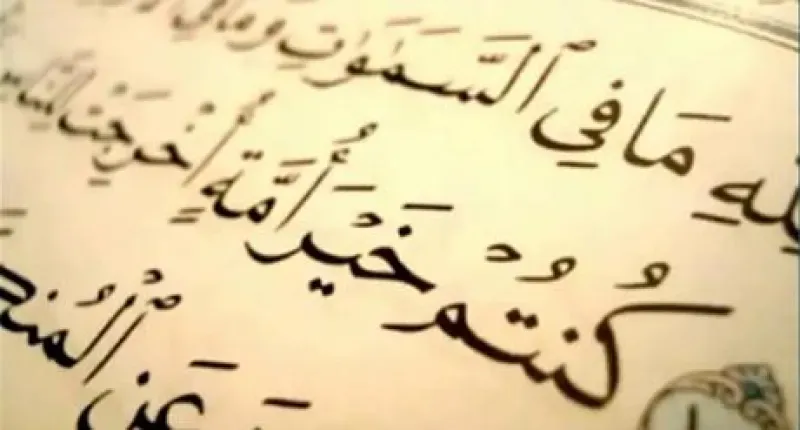 لِلَّهِ مَا فِي ٱلسَّمَٰوَٰتِ وَمَا فِي
كُنتُمْ خَيْرَ أُمَّةٍ أُخْرِجَتْ لِلنَّاسِ
عَنِ ٱلْمُنكَ